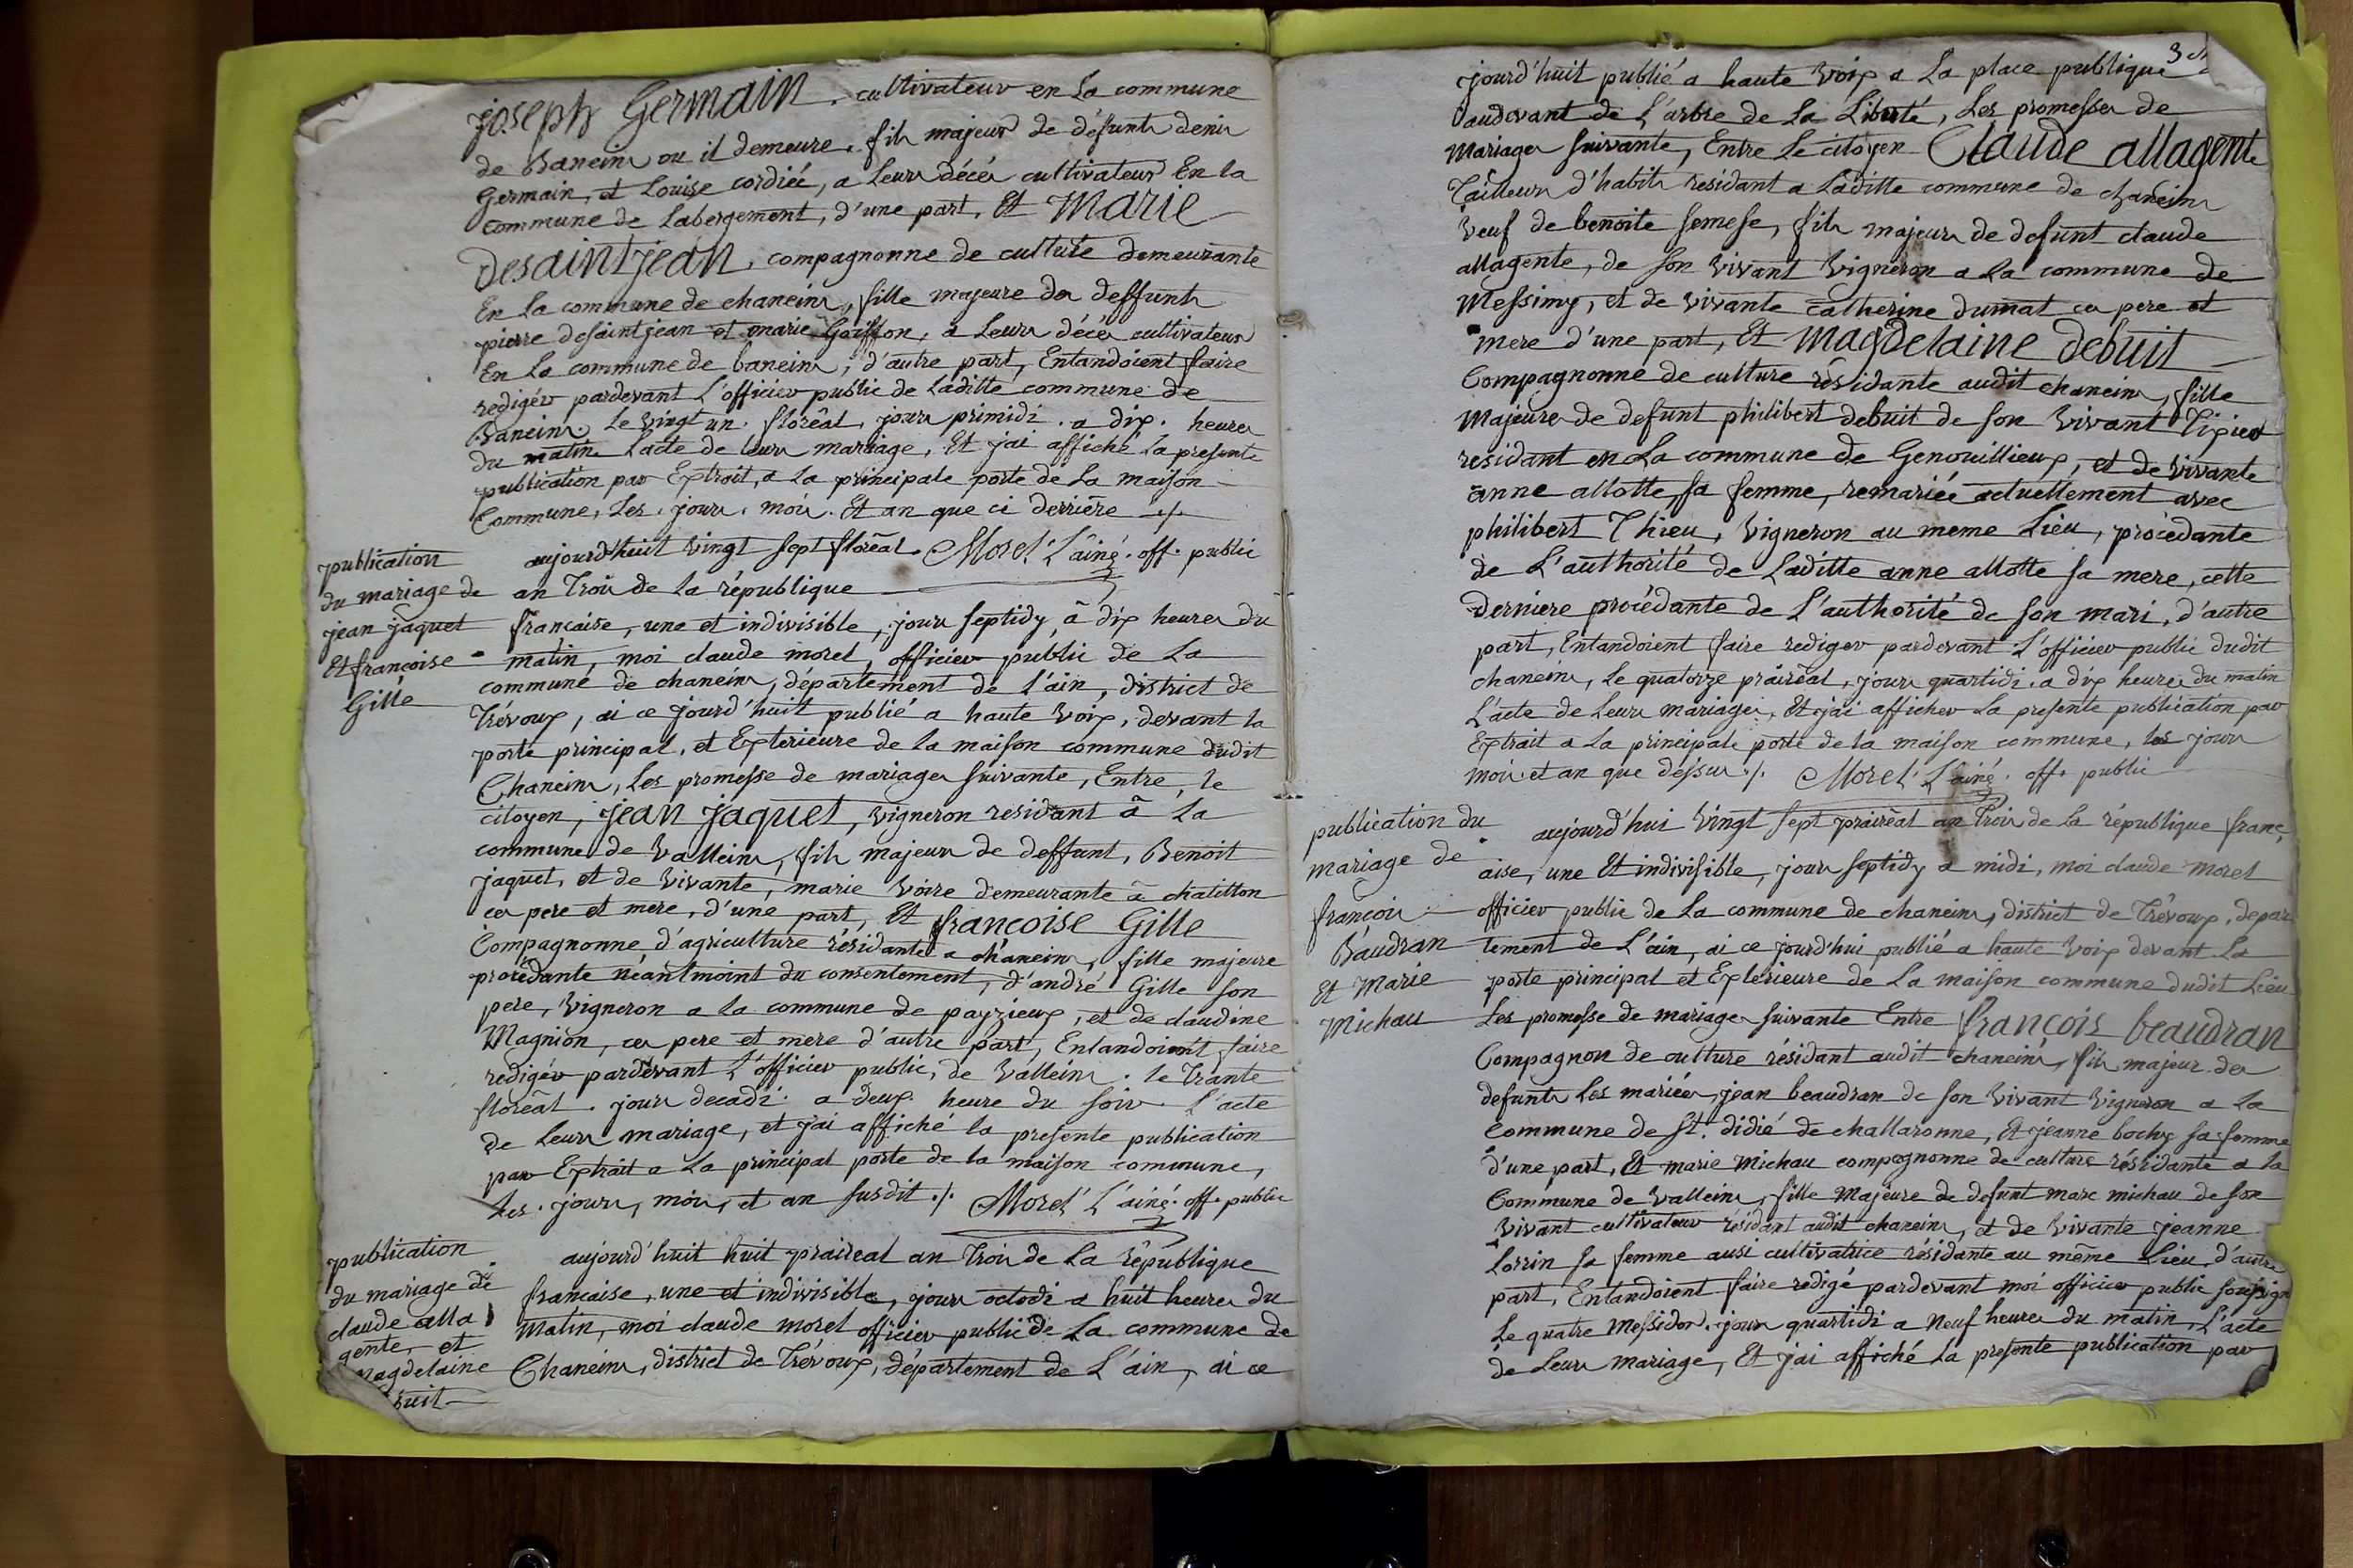 joseph Germain, cultivateur en La commune
de Baneins ou il demeure, fils majeur de défunts denis
Germain, et Louise cordiée, a Leurs décés cultivateurs En la
commune de Labergement, d'une part, Et Marie
desaintjean, compagnonne de culture demeurante
En La commune de chaneins, fille majeure des deffunts
pierre desaintjean et marie Goiffon, a Leurs décés cultivateurs
En La commune de baneins, d'autre part, Entandoient faire
redigér pardevant L'officier public de Laditte commune de
Baneins. Le vingt un. floréal, jours primidi. a dix. heures
du matin Lacte de leurs mariage, Et jai affiché La presente
publication par Extrait, a La principale porte de La maison
Commune, Les. jours. mois. Et an que ci derrière ./.
Morel L'ainé. off. public
publication
du mariage de
jean jaquet
Et françoise
Gille
aujourd'huit vingt sept floréal.
an Trois de la république
francaise, une et indivisible, jours septidy, à dix heures du
matin, moi claude morel, officier public de La
commune de chaneins, departement de l'ain, district de
Trévoux, ai ce jourd'huit publié a haute voix, devant la
porte principal, et Exterieure de la maison commune dudit
Chaneins, Les promesse de mariages suivante, Entre, le
citoyen, jean jaquet, vigneron residant à La
commune de Valleins, fils majeurs de deffunt, Benoit
jaquet, et de vivante, marie voire demeurante à chatillon
ces pere et mere, d'une part, Et françoise Gille
Compagnonne d'agriculture résidante a chaneins, fille majeure
procédante néantmoint du consentement, d'andré Gille son
pere, vigneron a la commune de payzieux, et de claudine
Magnion, ces pere et mere d'autre part, Entandoient faire
redigér pardevant L'officier public, de Valleins. le Trante
floréal. jours decadi. a deux heure du soir. L'acte
de Leurs mariage, et j'ai affiché la presente publication
par Extrait a La principal porte de la maison commune,
Les. jours, mois, et an susdit ./. Morel L'ainé. off. public
publication
du mariage de
claude alla
gente, et
Magdelaine
buit
aujourd'huit huit praireal an Trois de La république
francaise, une et indivisible, jours octodi a huit heures du
Matin, moi claude morel officier public de La commune de
Chaneins, district de Trévoux, département de L'ain, ai ce
3
jourd'huit publié a haute voix a La place publique
audevant de L'arbre de La Liberté, Les promesses de
Mariages suivante, Entre Le citoyen Claude allagente
Tailleurs d'habits residant a Laditte commune de chaneins
veuf de benoite semese, fils majeurs de defunt claude
allagente, de son vivant vigneron a La commune de
Messimy, et de vivante catherine dumat ces pere et
mere d'une part, Et Magdelaine debuit
Compagnonne de culture résidante audit chaneins, fille
Majeure de defunt philibert debuit de son vivant Tixier
residant en La commune de Genouillieux, et de vivante
anne allotte, sa femme, remariée actuellement avec
philibert Thieu, vigneron au meme Lieu, procédante
de L'authorité de Laditte anne allotte sa mere, cette
derniere procédante de L'authorité de son mari, d'autre
part, Entandoient faire rediger pardevant L'officier public dudit
chaneins, Le quatorze prairéal, jours quartidi, a dix heures du matin
L'acte de Leurs mariages, Et j'ai afficher La presente publication par
Extrait a La principale porte de la maison commune, les jours
mois et an que dessus ./. Morel L'ainé. off. public
publication du
mariage de
françois
Baudran
Et Marie
Michau
aujourd'hui vingt sept prairéal an Trois de La république franç
aise, une Et indivisible, jours septidy a midi, moi claude Morel
officier public de La commune de chaneins, district de Trévoux, depar
tement de L'ain, ai ce jourd'hui publié a haute voix devant La
porte principal et Exterieure de La maison commune dudit Lieu
Les promesse de mariages suivante Entre françois beaudran
Compagnon de culture résidant audit chaneins, fils majeur des
defunts Les mariées, jean beaudran de son vivant vigneron a La
Commune de St. didié de challaronne, Et jeanne bochy sa femme
d'une part, Et marie Michau compagnonne de culture résidante a la
Commune de Valleins, fille Majeure de defunt marc michau de son
vivant cultivateur résidant audit chaneins, et de vivante jeanne
Lorrin sa femme ausi cultivatrice résidante au même Lieu, d'autre
part, Entandoient faire redigé pardevant moi officier public sousign
Le quatre Messidor. jours quartidi a neuf heures du matin, L'acte
de Leurs mariage, Et j'ai affiché La presente publication par